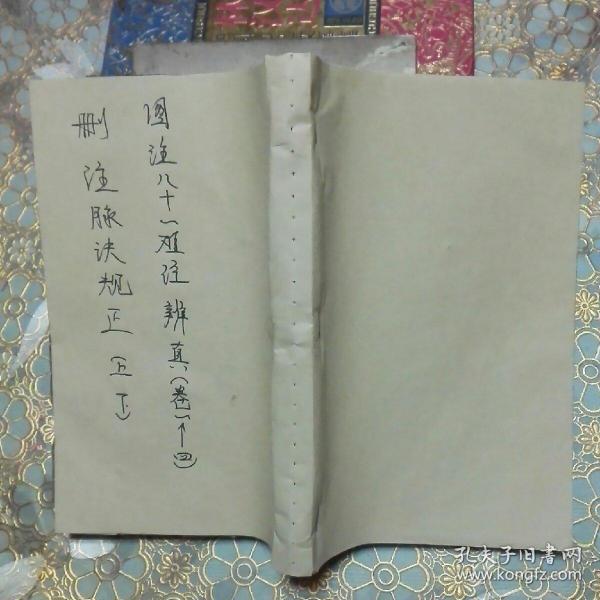 图注八十一难注辨真(卷一→四)
删注脉诀规正(上下)
孔夫子旧书网
www.kongfz.com